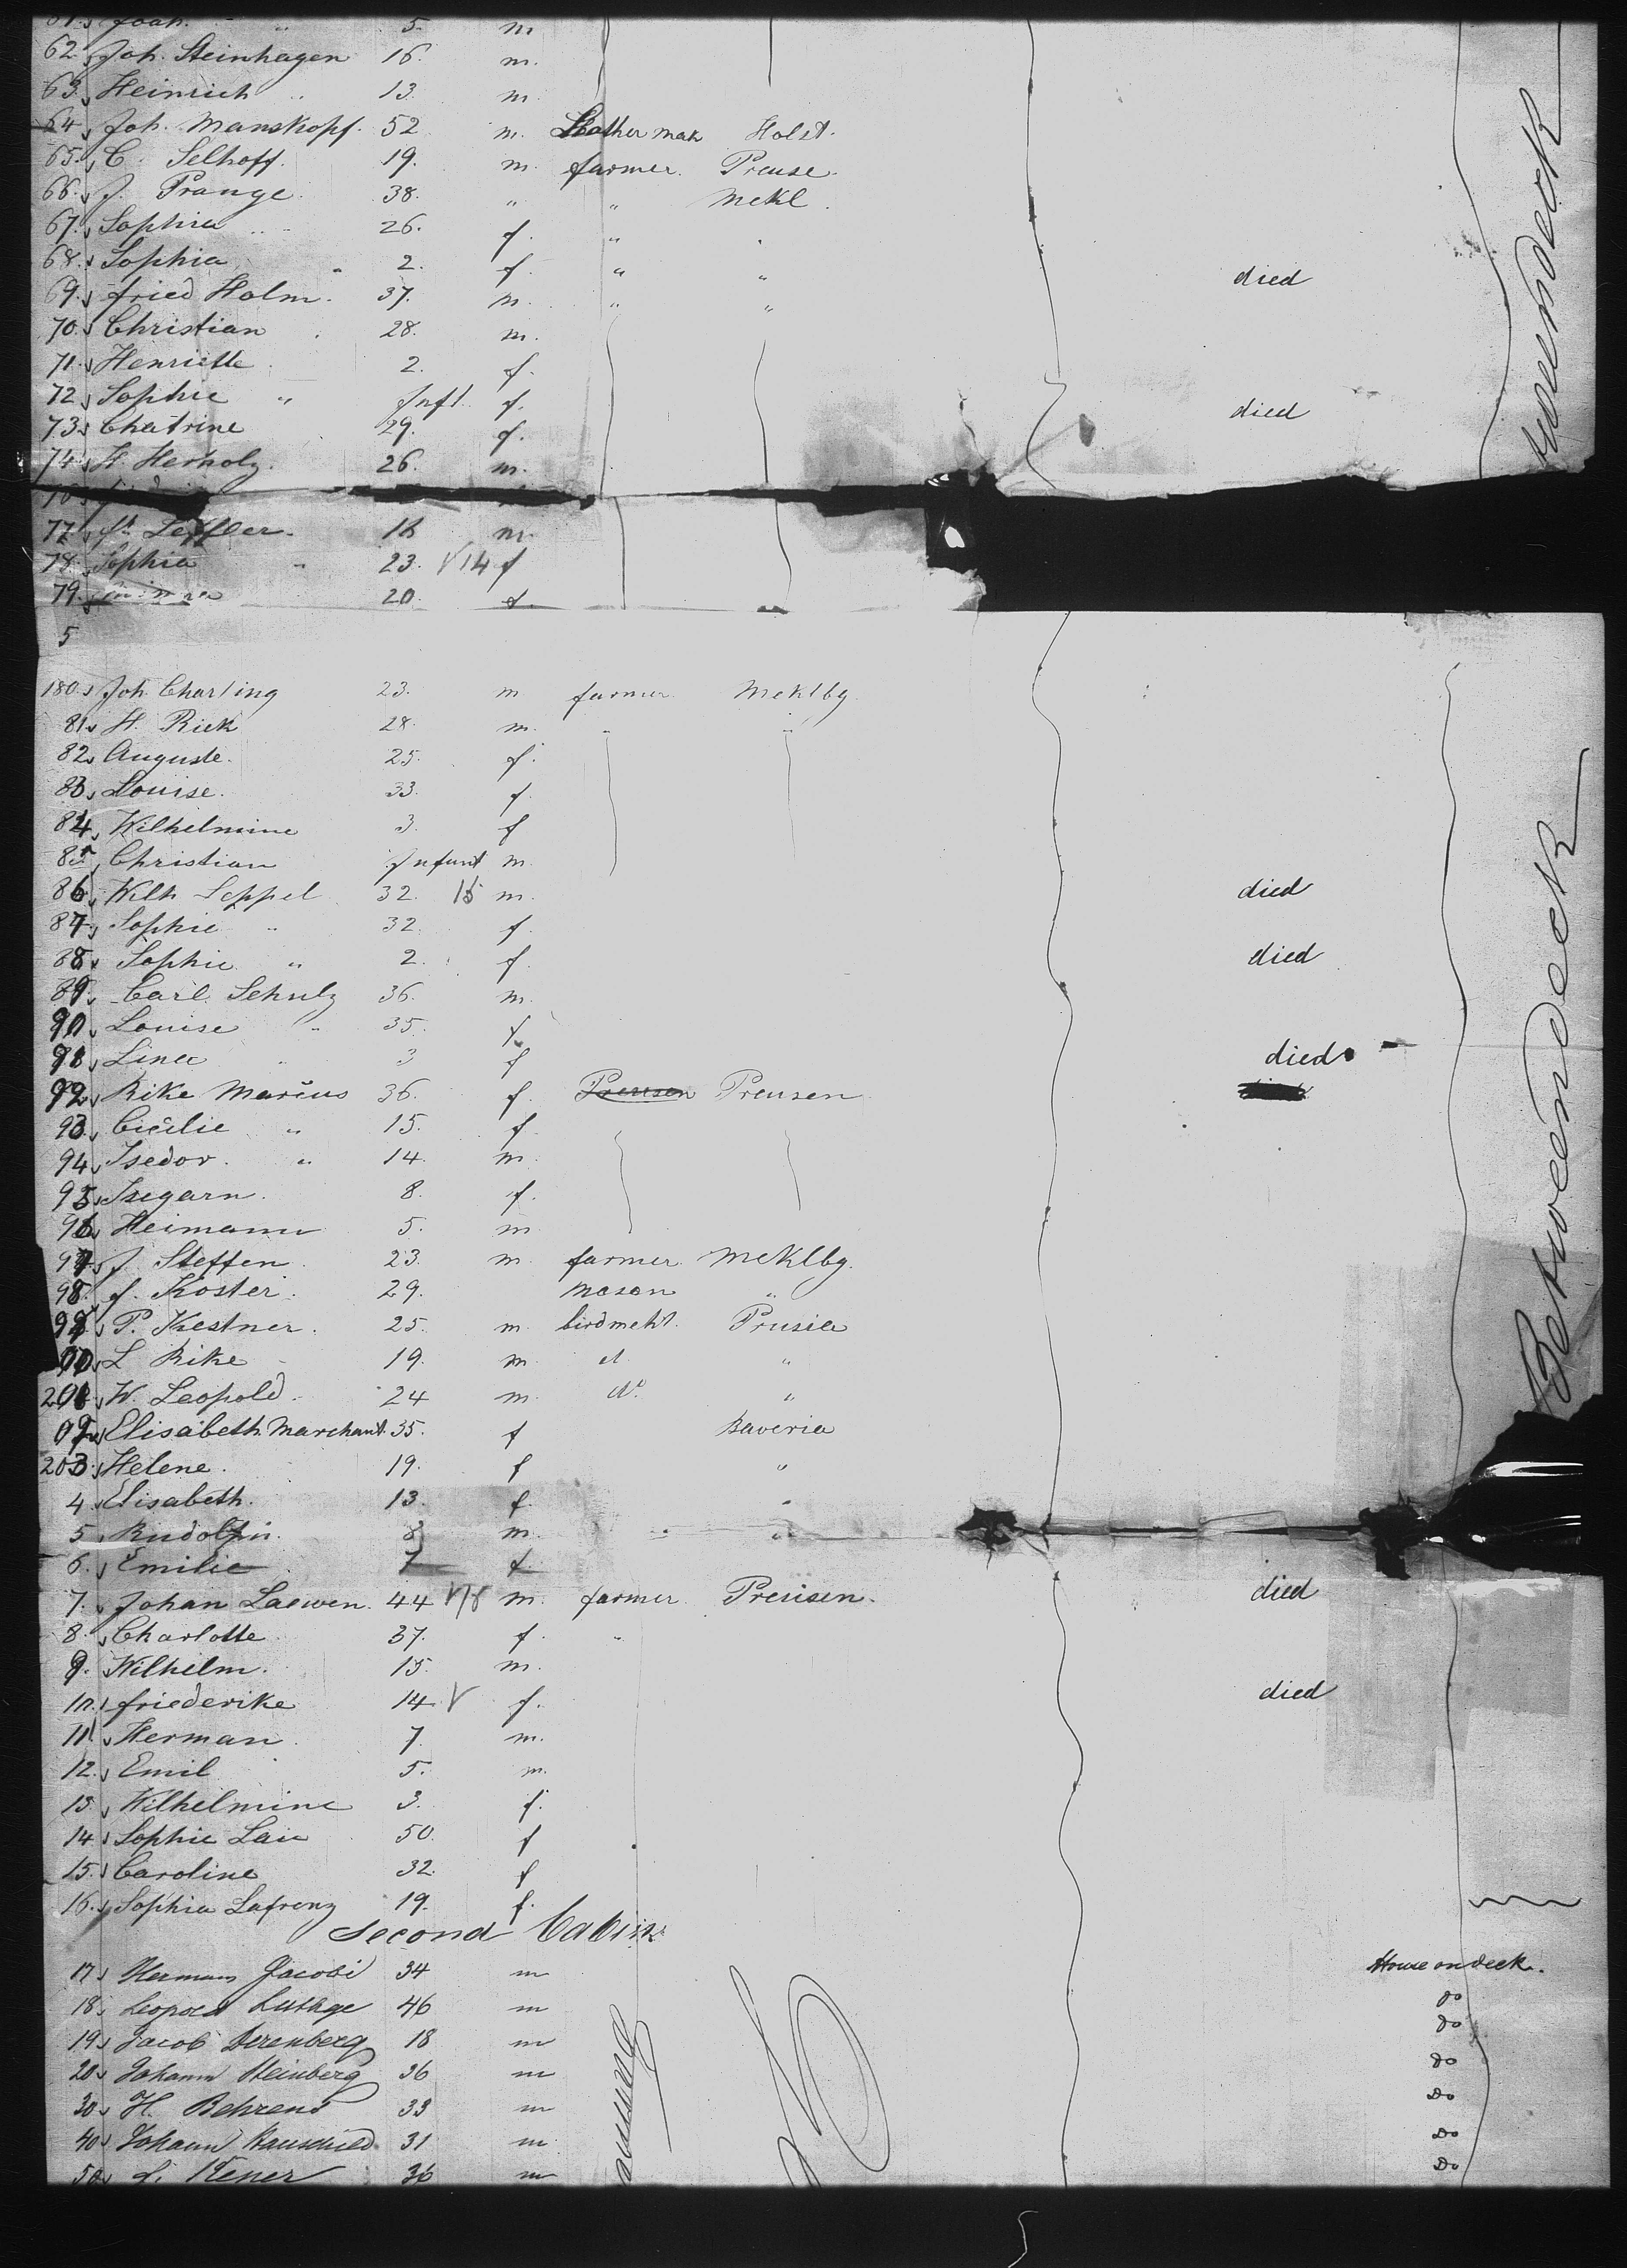 Joah. " 5. m
62 Joh. Steinhagen 16. m.
63. Heinrich " 13. m.
64 Joh. Manskopf. 52 m. Leather mak Holst.
65. C. Selhoff. 19. m. farmer. Preuse.
66. J. Prange. 38. " " Mekl.
67. Sophia " 26. f. " "
68. Sophia " 2. f. " " died
69. fried Holm. 37. m. " "
70. Christian 28. m.
71. Henriette 2. f.
72. Sophie " Inft. f. died
73. Chatrine 29. f.
74. H. Herholz. 26. m.
77. fr. Leffler. m.
78. Sophia " 23. V 14 f
79. 20. f.
Betweendeck
5
180. Joh. Charling 23. m farmer Meklbg.
81. H. Riek 28. m. " "
82. Auguste. 25. f.
83. Louise. 33. f
84. Wilhelmine 3. f
85. Christian Infant m.
86. Wilh Leppel 32. 15 m. died
87. Sophie " 32. f.
88. Sophie " 2. f. died
89. Carl Schulz 36. m.
90. Louise " 35. f.
91. Lina " 3 f died
92. Rike Marcus 36. f. Preusen Preusen
93. Cicilie " 15. f
94. Isedor. " 14. m.
95. Isegarn. 8. f.
96. Heimann 5. m
97. J. Steffen 23. m farmer Meklbg.
98. f. Koster. 29. mason "
99. P. Kestner. 25. m birdmcht. Prusia
L Rike 19. m. "
201. W. Leopold. 24 m. do. "
02. Elisabeth Marchant. 35. f Baveria
203. Helene. 19. f "
4. Elisabeth. 13. f "
5. Rudolph. 8 m. " "
6. Emilie 7 f
7. Johan Laewen. 44 V18 m. farmer Preusen. died
8. Charlotte 37. f. "
9. Wilhelm. 15. m.
10. friederike 14 V f. died
11. Herman. 7. m.
12. Emil 5. m.
13. Wilhelmine 3. f.
14. Sophie Lau 50. f
15. Caroline 32. f
16. Sophia Lafrenz 19. f.
Betweendeck
Second Cabin
17. Hermann Jacobi 34 m House on deck.
18. Leopold Luthge 46 m do
19. Jacob Derenberg 18 m do
20. Johann Steinberg 36 m do
30. H. Behrens 33 m Do
40. Johann 31 m Do
50. 36 m Do